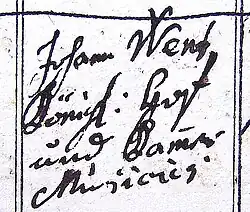 Johann Went,
Königl: Hof
und Kam̅er
Musicus.